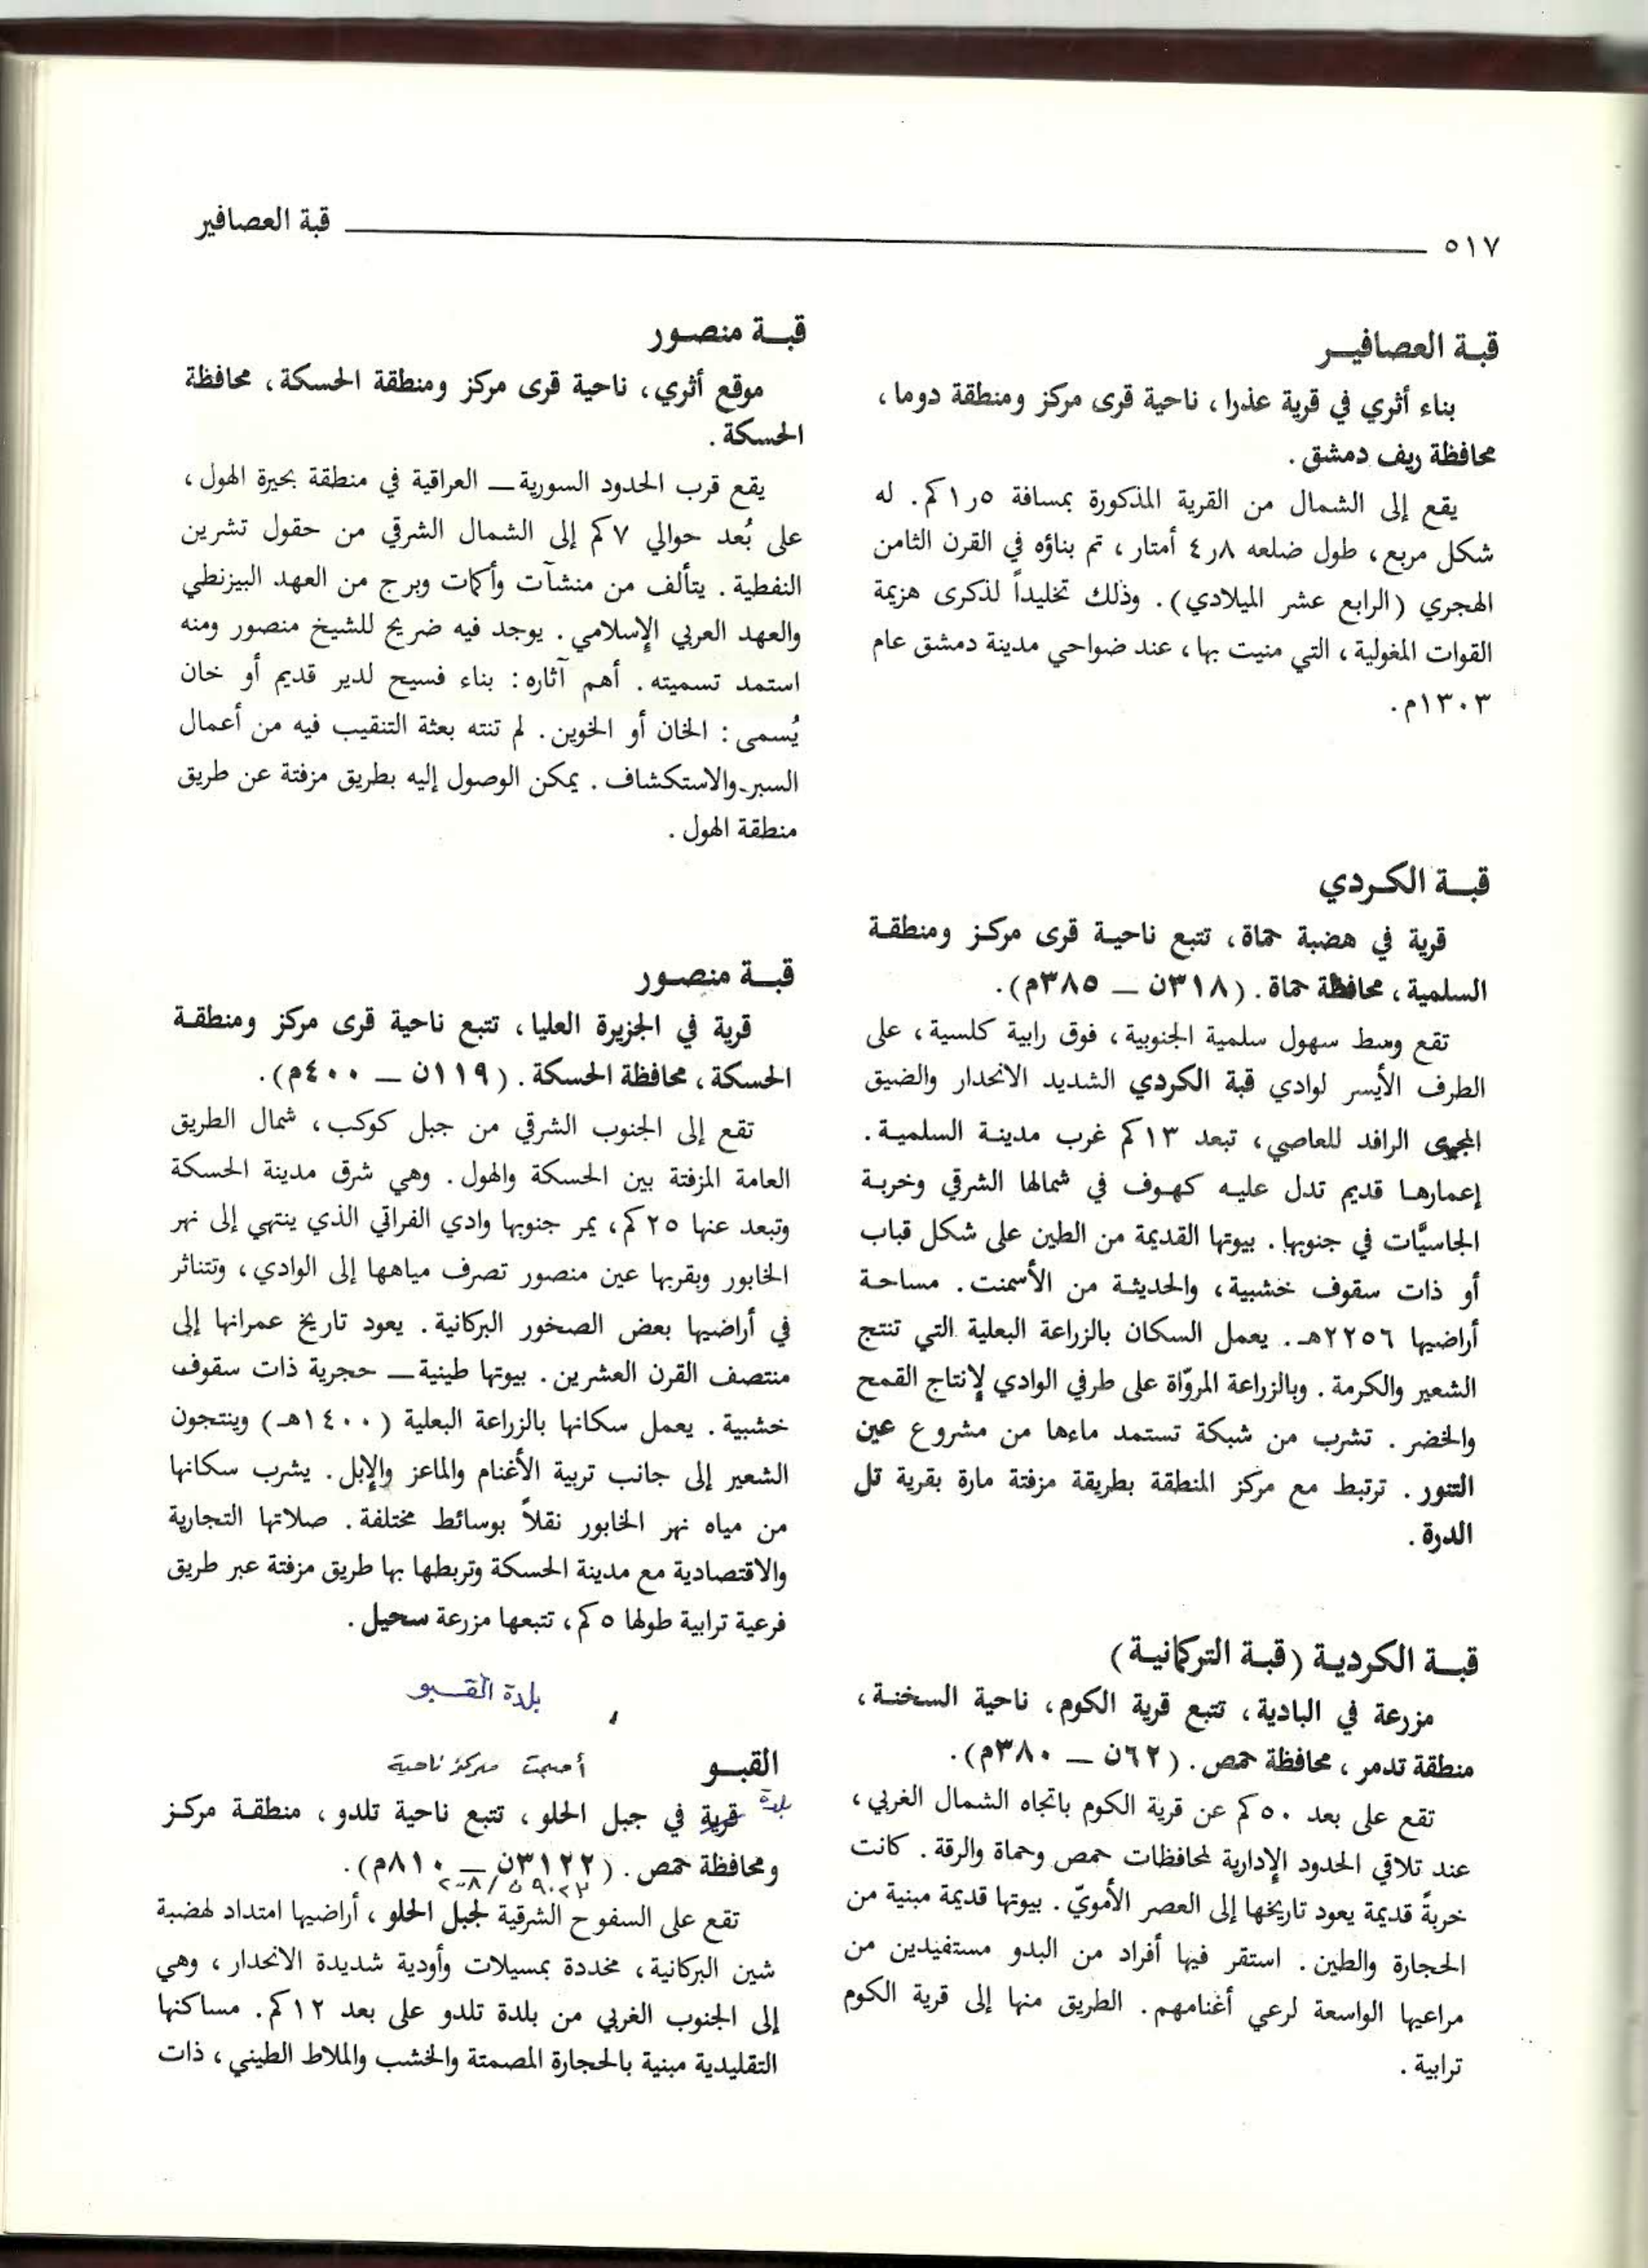 ٥١٧
قبة العصافير
قبـة العصافيـر
بناء أثري في قرية عذرا، ناحية قرى مركز ومنطقة دوما،
محافظة ريف دمشق.
يقع إلى الشمال من القرية المذكورة بمسافة ٥ر١كم. له
شكل مربع، طول ضلعه ٨ر٤ أمتار، تم بناؤه في القرن الثامن
الهجري (الرابع عشر الميلادي). وذلك تخليداً لذكرى هزيمة
القوات المغولية، التي منيت بها، عند ضواحي مدينة دمشق عام
١٣٠٣م.
قبـة الكـردي
قرية في هضبة حماة، تتبع ناحيـة قرى مركـز ومنطقـة
السلمية، محافظة حماة. (٣١٨ن ـ ٣٨٥م).
تقع وسط سهول سلمية الجنوبية، فوق رابية كلسية، على
الطرف الأيسر لوادي قبة الكردي الشديد الانحدار والضيق
المجرى الرافد للعاصي، تبعد ١٣كم غرب مدينـة السلميـة.
إعمارهـا قديم تدل عليـه كهـوف في شمالها الشرقي وخربـة
الجاسيَّات في جنوبها. بيوتها القديمة من الطين على شكل قباب
أو ذات سقوف خشبية، والحديثـة من الأسمنت. مساحـة
أراضيها ٢٢٥٦هـ. يعمل السكان بالزراعة البعلية التي تنتج
الشعير والكرمة. وبالزراعة المروّاة على طرفي الوادي لإنتاج القمح
والخضر. تشرب من شبكة تستمد ماءها من مشروع عين
التنور. ترتبط مع مركز المنطقة بطريقة مزفتة مارة بقرية تل
الدرة.
قبـة الكرديـة (قبـة التركمانيـة)
مزرعة في البادية، تتبع قرية الكوم، ناحية السخنـة،
منطقة تدمر، محافظة حمص. (٦٢ن ـ ٣٨٠م).
تقع على بعد ٥٠كم عن قرية الكوم باتجاه الشمال الغربي،
عند تلاقي الحدود الإدارية لمحافظات حمص وحماة والرقة. كانت
خربةً قديمة يعود تاريخها إلى العصر الأمويّ. بيوتها قديمة مبنية من
الحجارة والطين. استقر فيها أفراد من البدو مستفيدين من
مراعيها الواسعة لرعي أغنامهم. الطريق منها إلى قرية الكوم
ترابية.
قبـة منصـور
موقع أثري، ناحية قرى مركز ومنطقة الحسكة، محافظة
الحسكة.
يقع قرب الحدود السورية ـ العراقية في منطقة بحيرة الهول،
على بُعد حوالي ٧كم إلى الشمال الشرقي من حقول تشرين
النفطية. يتألف من منشآت وأكمات وبرج من العهد البيزنطي
والعهد العربي الإسلامي. يوجد فيه ضريح للشيخ منصور ومنه
استمد تسميته. أهم آثاره: بناء فسيح لدير قديم أو خان
يُسمى: الخان أو الخوين. لم تنته بعثة التنقيب فيه من أعمال
السبر والاستكشاف. يمكن الوصول إليه بطريق مزفتة عن طريق
منطقة الهول.
قبـة منصـور
قرية في الجزيرة العليا، تتبع ناحية قرى مركز ومنطقـة
الحسكة، محافظة الحسكة. (١١٩ن ـ ٤٠٠م).
تقع إلى الجنوب الشرقي من جبل كوكب، شمال الطريق
العامة المزفتة بين الحسكة والهول. وهي شرق مدينة الحسكة
وتبعد عنها ٢٥كم، يمر جنوبها وادي الفراتي الذي ينتهي إلى نهر
الخابور وبقربها عين منصور تصرف مياهها إلى الوادي، وتتناثر
في أراضيها بعض الصخور البركانية. يعود تاريخ عمرانها إلى
منتصف القرن العشرين. بيوتها طينية ـ حجرية ذات سقوف
خشبية. يعمل سكانها بالزراعة البعلية (١٤٠٠هـ) وينتجون
الشعير إلى جانب تربية الأغنام والماعز والإبل. يشرب سكانها
من مياه نهر الخابور نقلاً بوسائط مختلفة. صلاتها التجارية
والاقتصادية مع مدينة الحسكة وتربطها بها طريق مزفتة عبر طريق
فرعية ترابية طولها ٥كم، تتبعها مزرعة سحيل.
بلدة القـبو
القبـو أصبحت مركز ناحية
بلدة
قرية في جبل الحلو، تتبع ناحية تلدو، منطقـة مركـز
ومحافظة حمص. (٣١٢٢ن ـ ٨١٠م).
تقع على السفوح الشرقية لجبل الحلو، أراضيها امتداد لهضبة
شين البركانية، مخددة بمسيلات وأودية شديدة الانحدار، وهي
إلى الجنوب الغربي من بلدة تلدو على بعد ١٢كم. مساكنها
التقليدية مبنية بالحجارة المصمتة والخشب والملاط الطيني، ذات